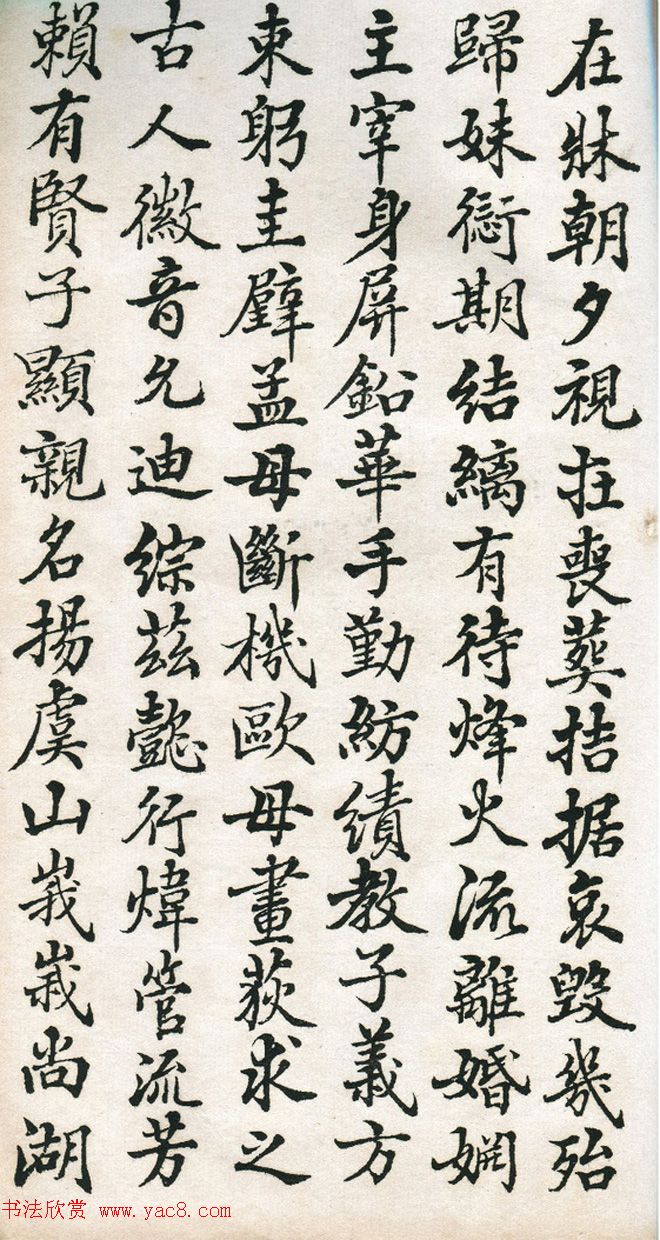 在牀朝夕視在喪葬拮据哀毀幾殆
歸妹愆期結縭有待烽火流離婚姻
主宰身屏鉛華手勤紡績教子義方
束躬圭璧孟母斷機歐母畫荻求之
古人徽音允迪綜茲懿行煒管流芳
賴有賢子顯親名揚虞山峩峩尚湖
书法欣赏 www.yac8.com